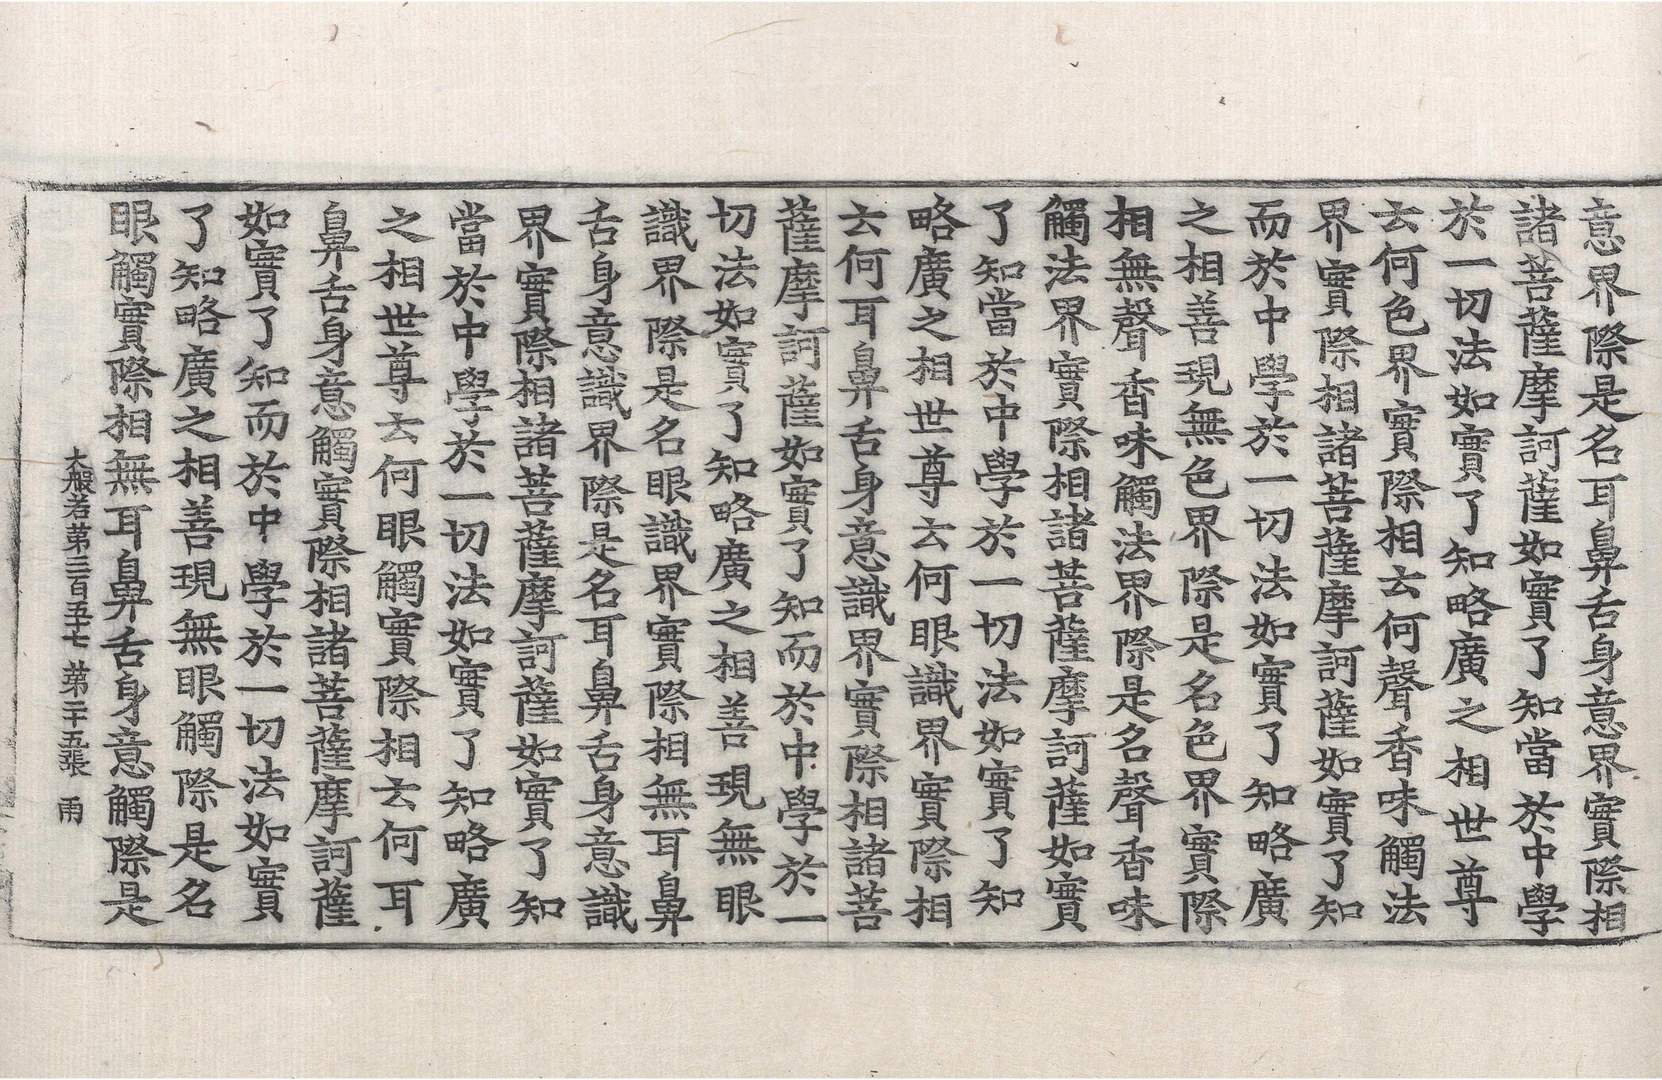 意界際是名耳鼻舌身意界實際相
諸菩薩摩訶薩如實了知當於中學
於一切法如實了知略廣之相世尊
云何色界實際相云何聲香味觸法
界實際相諸菩薩摩訶薩如實了知
而於中學於一切法如實了知略廣
之相善現無色界際是名色界實際
相無聲香味觸法界際是名聲香味
觸法界實際相諸菩薩摩訶薩如實
了知當於中學於一切法如實了知
略廣之相世尊云何眼識界實際相
云何耳鼻舌身意識界實際相諸菩
薩摩訶薩如實了知而於中學於一
切法如實了知略廣之相善現無眼
識界際是名眼識界實際相無耳鼻
舌身意識界際是名耳鼻舌身意識
界實際相諸菩薩摩訶薩如實了知
當於中學於一切法如實了知略廣
之相世尊云何眼觸實際相云何耳
鼻舌身意觸實際相諸菩薩摩訶薩
如實了知而於中學於一切法如實
了知略廣之相善現無眼觸際是名
眼觸實際相無耳鼻舌身意觸際是
大般若第三百五十七 第二十五張 雨